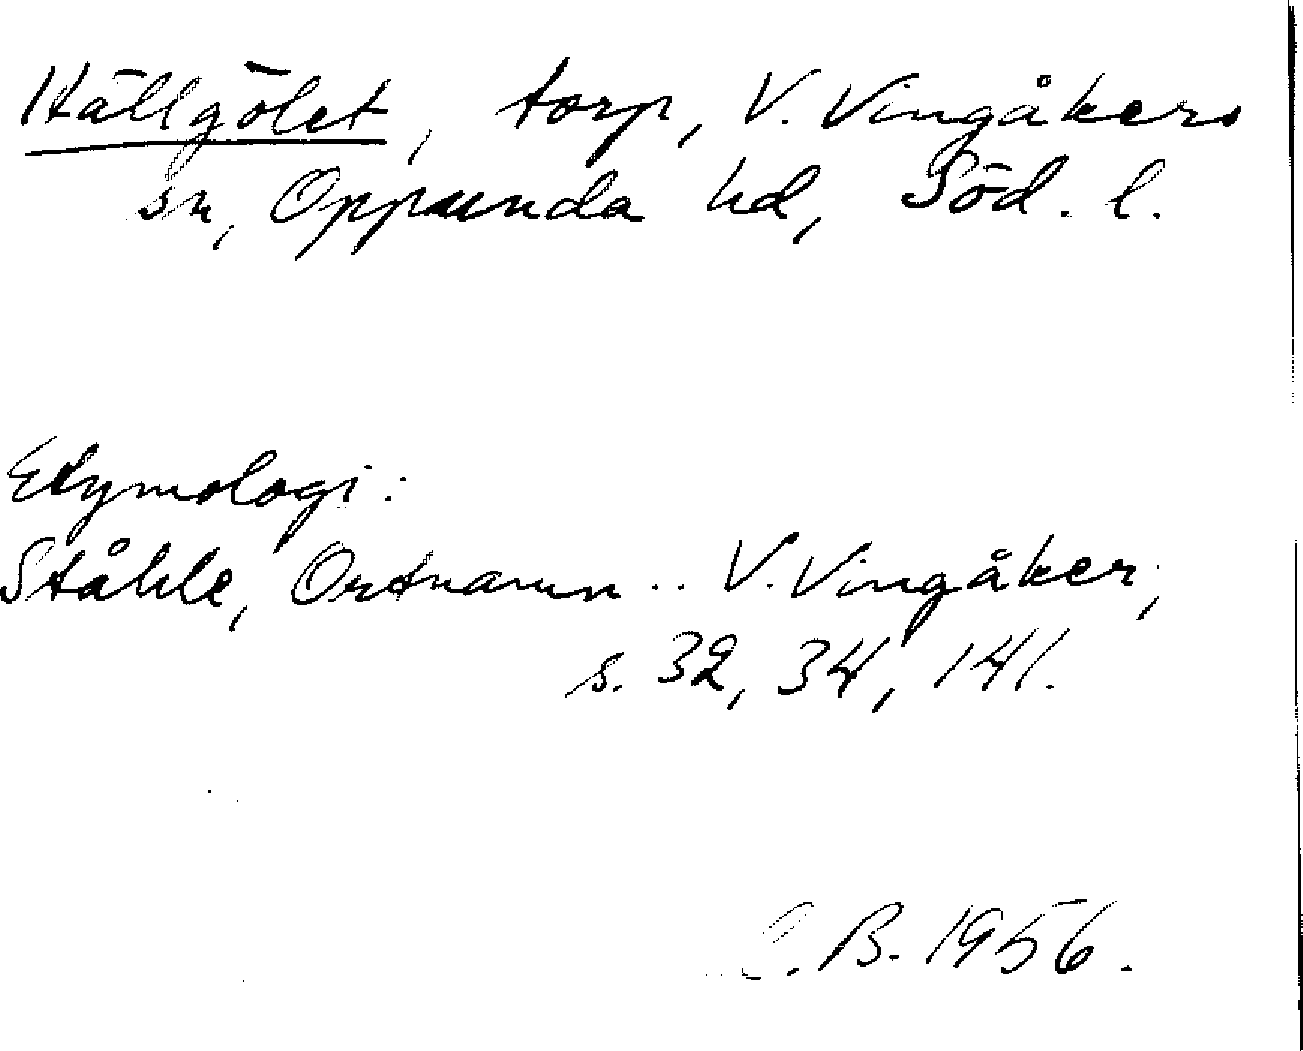 Hällgölet, torp, V. Vingåkers
sn, Oppunda hd, Söd. l.
Etymologi:
Ståhle, Ortnamn .. V. Vingåker,
s. 32, 34, 141.
B. 1956.